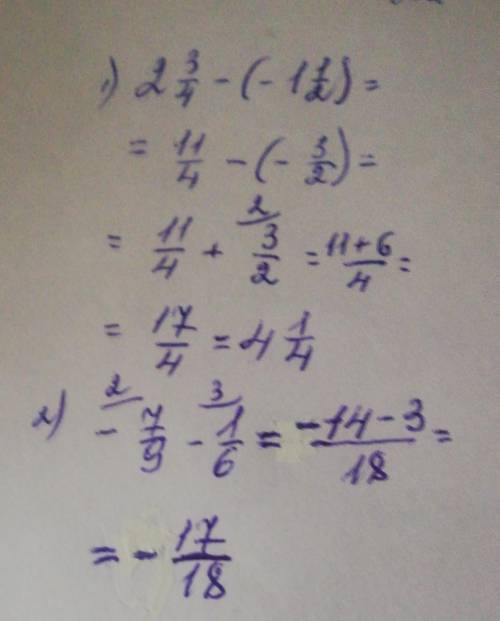 1) 2 3/4 - (- 1 1/2) =
= 11/4 - (- 3/2) =
= 11/4 + 3/2 (2 = (11 + 6)/4 =
= 17/4 = 4 1/4
2) - 7/9 (2 - 1/6 (3 = (-14 - 3)/18 =
= - 17/18